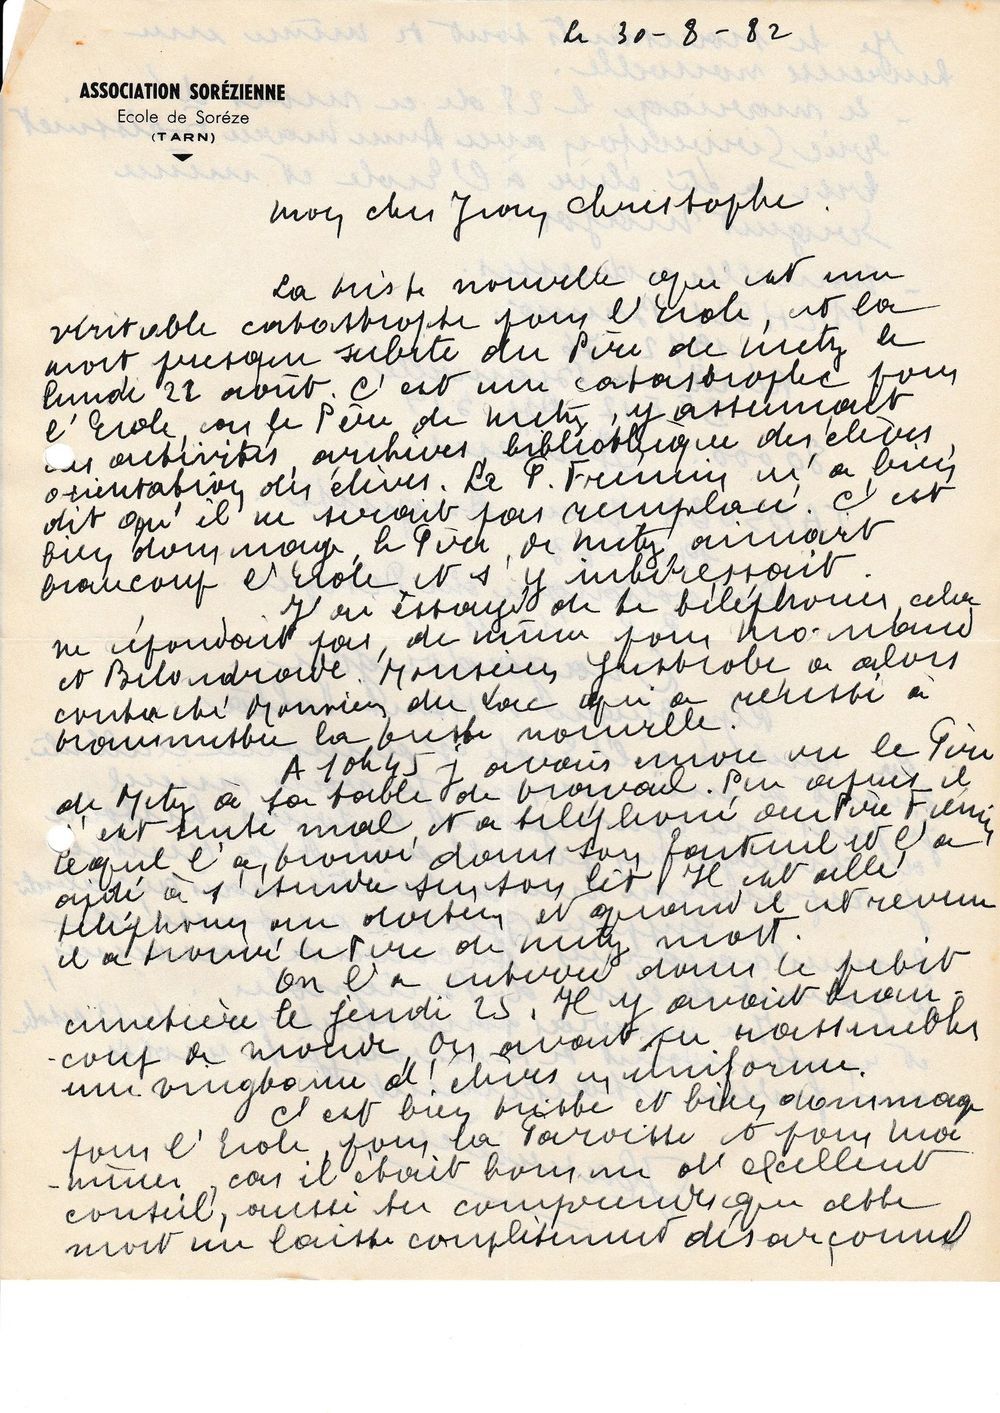 Le 30-8-82
ASSOCIATION SORÉZIENNE
Ecole de Soréze
(TARN)
Mon cher Jean Christophe.
La triste nouvelle qui est une
véritable catastrophe pour l'Ecole, est la
mort presque subite du Père de Metz le
lundi 22 août. C'est une catastrophe pour
l'Ecole car le Père de Metz, y assumait
des activités, archives, bibliothèque des élèves,
orientation des élèves. Le P. m'a bien
dit qu'il ne serait pas remplacé. C'est
bien dommage, le Père, de Metz aimait
beaucoup l'Ecole et s'y intéressait.
J'ai éssayé de te téléphoner, cela
ne répondait pas, de même pour
et . Monsieur a alors
contacté Monsieur du Lac qui a réussi à
transmettre la triste nouvelle.
A 10h45 j'avais encore vu le Père
de Metz à sa table de travail. Peu après il
s'est senti mal, et a téléphoné au Père
lequel l'a trouvé dans son fauteuil et l'a
aidé à s'étendre sur son lit. Il est allé
téléphoner au docteur et quand il est revenu
il a trouvé le Père de Metz mort.
On l'a enterré dans le petit
cimetière le jeudi 25. Il y avait beau-
-coup de monde, on avait pu rassembler
une vingtaine d'élèves en uniforme.
C'est bien triste et bien dommage
pour l'Ecole, pour la Paroisse et pour moi
-même, car il était homme d'excellent
conseil, aussi tu comprends que cette
mort me laisse complètement désarçonné